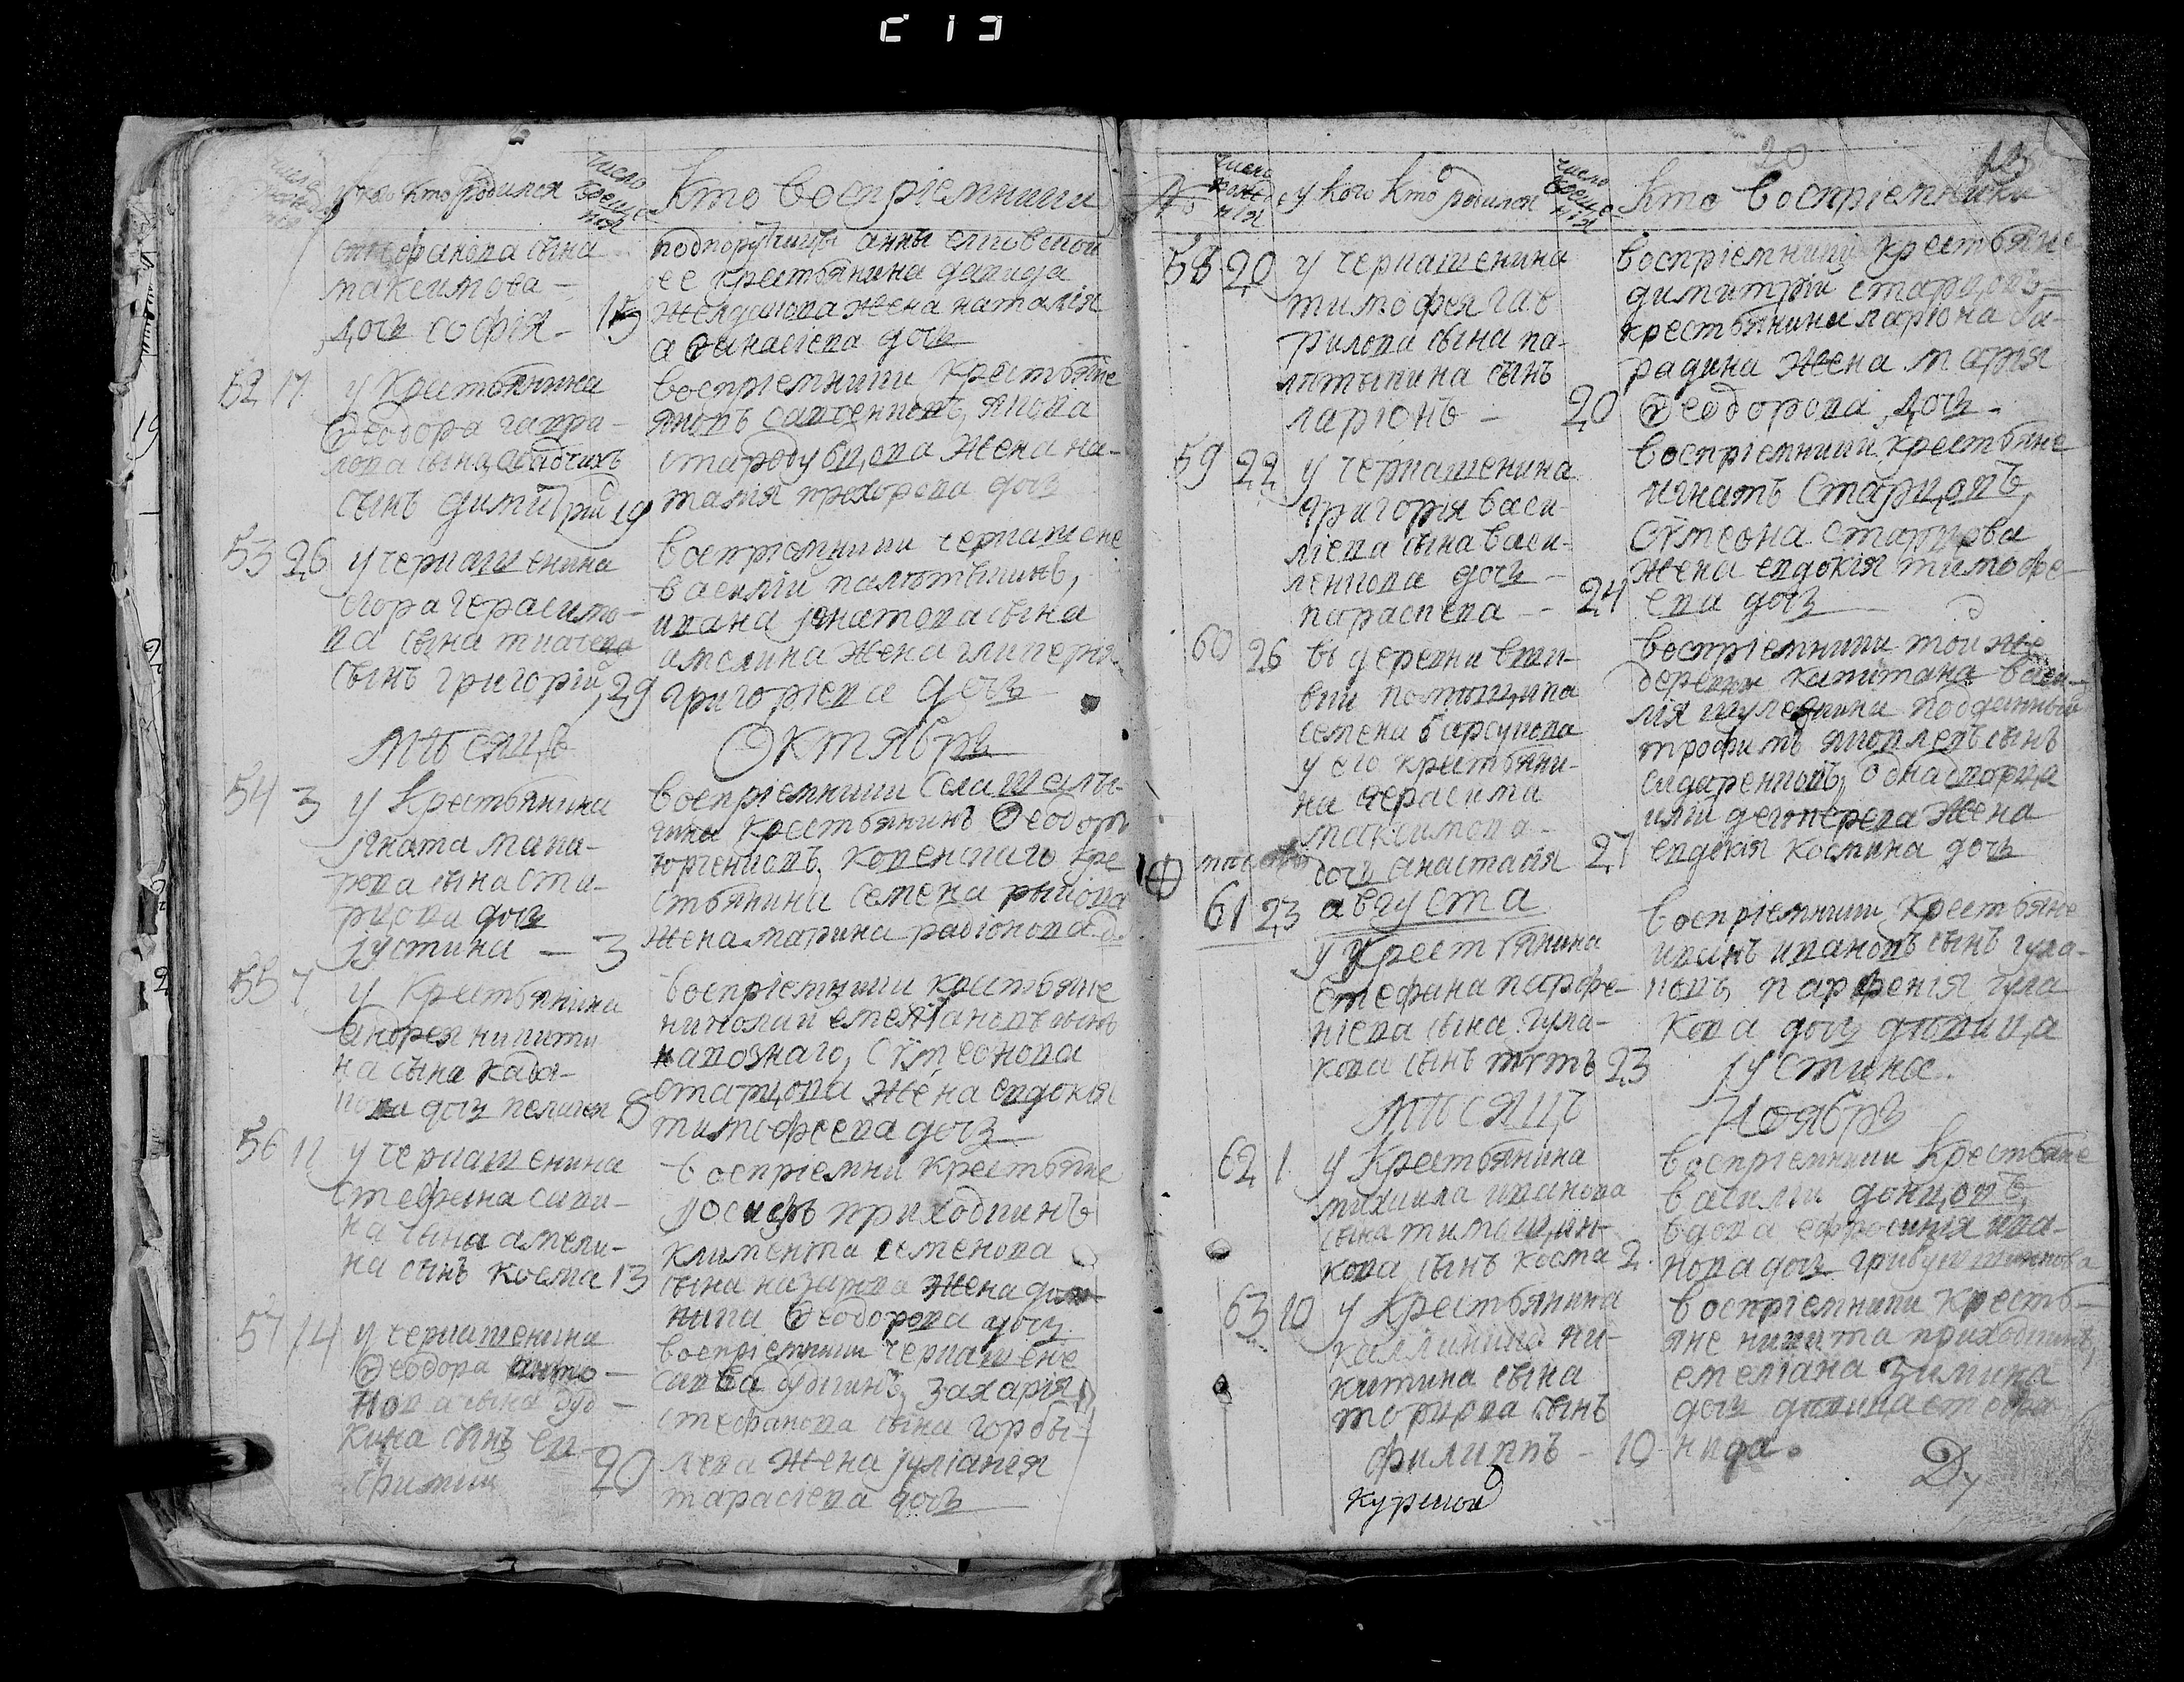 число рожденія
у кого кто родился
число крещенія
Кто воспріемники
стефанова сына
максимова —
дочь софія — 15
подпорутчицы анны
ее крестьянина давида
жена наталія
афанасіева дочь
52 17 у Крестьянина
Ѳеодора гаври-
лова сына
сынъ димитрій 19
воспріемники крестьяне
яковъ савченковъ, якова
стародубцова жена на-
талія прохорова дочь
53 26 у черкашенина
егора герасимо-
ва сына ткачева
сынъ григорій, 29
воспріемники черкашене
василій палѣтыкинъ,
ивана игнатова сына
амелина жена гликерія
григоріева дочь
мѣсяцъ Октябрь
54 3 у Крестьянина
игната мака-
рова сына ста-
рцова дочь
іустина — 3
воспріемники села
крестьянинъ Ѳеодоръ
юрченковъ, коренскаго кре
стьянина семена рыкова
жена марина радіонова д.
55 7 у Крестьянина
андрея никити
на сына кабя-
кова дочь пелагея 8
воспріемники крестьяне
николай емеліановъ сынъ
сѵмеонова
старцова жена евдокія
тимофеева дочь
56 11 у черкашенина
стефана сави-
на сына амели-
на сынъ косма 13
воспріемни крестьяне
іосифъ приходкинъ
климента семенова
сына назарова жена
Ѳеодорова дочь
57 14 у черкашенина
Ѳеодора анто-
нова сына дуд-
кина сынъ ев-
фимій 20
воспріемники черкашене
савва дудкинъ, захарія
стефанова сына горбы-
лева жена іуліанія
тарасіева дочь
20
№
число рожденія
у кого кто родился
число крещенія
Кто воспріемники
58 20 у черкашенина
тимофея гав
рилова сына па-
лѣтыкина сынъ
ларіонъ — 20
воспріемники крестьяне
димитрій старцовъ
крестьянина ларіона ба-
радина жена марія
Ѳеодорова дочь
59 22 у черкашенина
григорія васи-
ліева сына васи-
ленкова дочь —
параскева — 24
воспріемники крестьяне
игнатъ Старцовъ,
Сѵмеона старцова
жена евдокія тимофе-
ева дочь
60 26 въ деревни
помѣщика
семена барсукова
у его крестьяни-
на герасима
максимова
дочь анастасія 27
воспріемники той же
деревни капитана васи-
лія подданный
трофимъ яковлевъ сынъ
сидаренковъ, однадворца
иліи дегтерева жена
евдокія космина дочь
61 23 августа
у Крестьянина
стефана парфе-
ніева сына гула-
кова сынъ титъ 23
воспріемники Крестьяне
иванъ ивановъ сынъ гула-
ковъ, парфенія гула
кова дочь дѣвица
іустина.
мѣсяцъ Ноябрь
62 1 у Крестьянина
михаила иванова
сына тимошен-
кова сынъ косма 2
воспріемники Крестьяне
василій донцовъ,
вдова ефросинія ива-
нова дочь
63 10 у Крестьянина
каллиника ни-
китина сына
сынъ
филиппъ — 10
воспріемники кресть-
яне никита приходкинъ,
емеліана зимина
дочь дѣвица степа-
нида.
Ду
курской